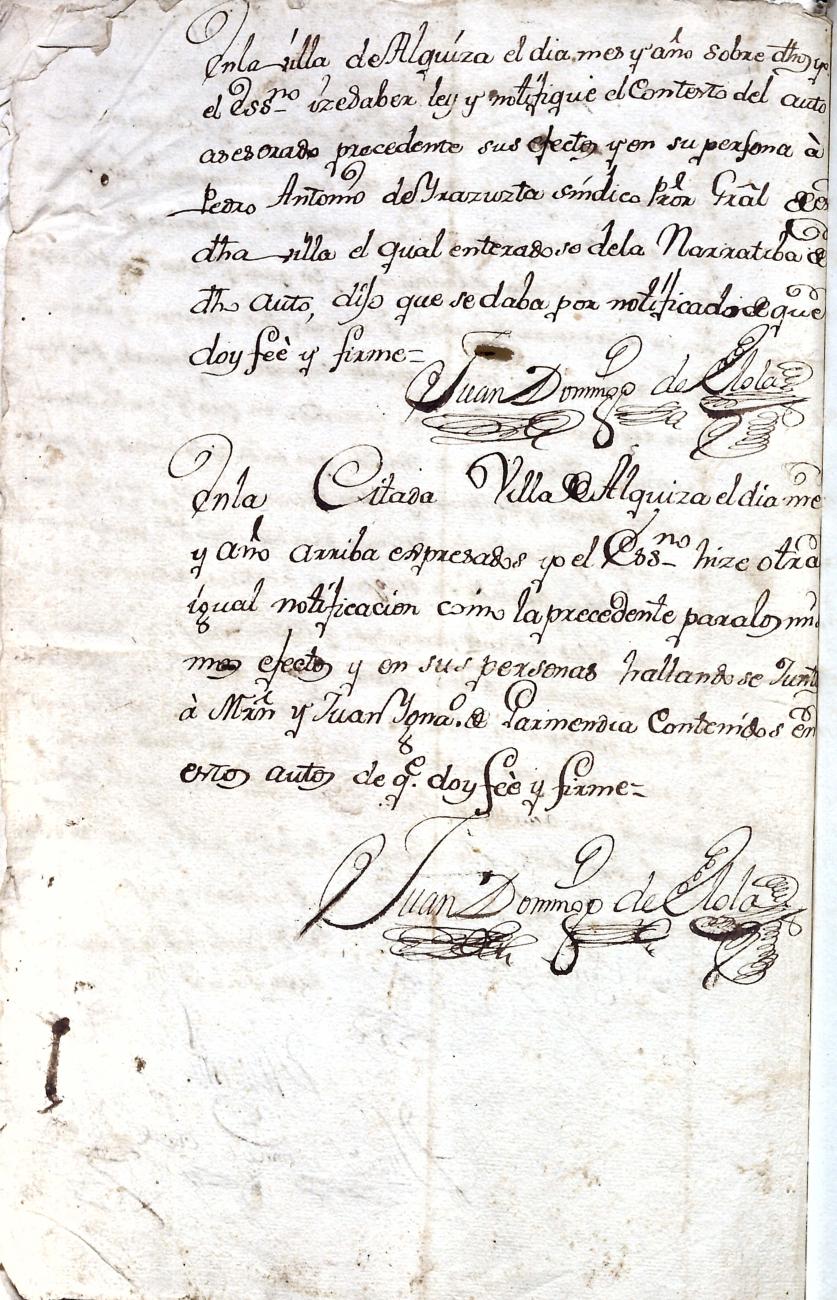 Enla villa de Alquiza el dia mes y año sobre dhos yo
el Ess.no izesaber ley y notifique el Contesto del auto
asesorado precedente sus efectos y en su persona à
Pedro Antonio de Yrazuzta sindico Pror Gral de
dha villa el qual enterado se dela Narratiba de
dho auto, dijo que se daba por notificado de que
doy feè y firme=
Juan Domingo de Elola
Enla Citada Villa de Alquiza el dia mes
y año arriba espresados yo el Ess.no hize otra
igual notificacion como la precedente para los mis
mos efectos y en sus personas hallandose Juntos
à Mrñ y Juan Ygna.o de Garmendia Contenidos en
estos autos de q.e doy feè y firme=
Juan Domingo de Elola